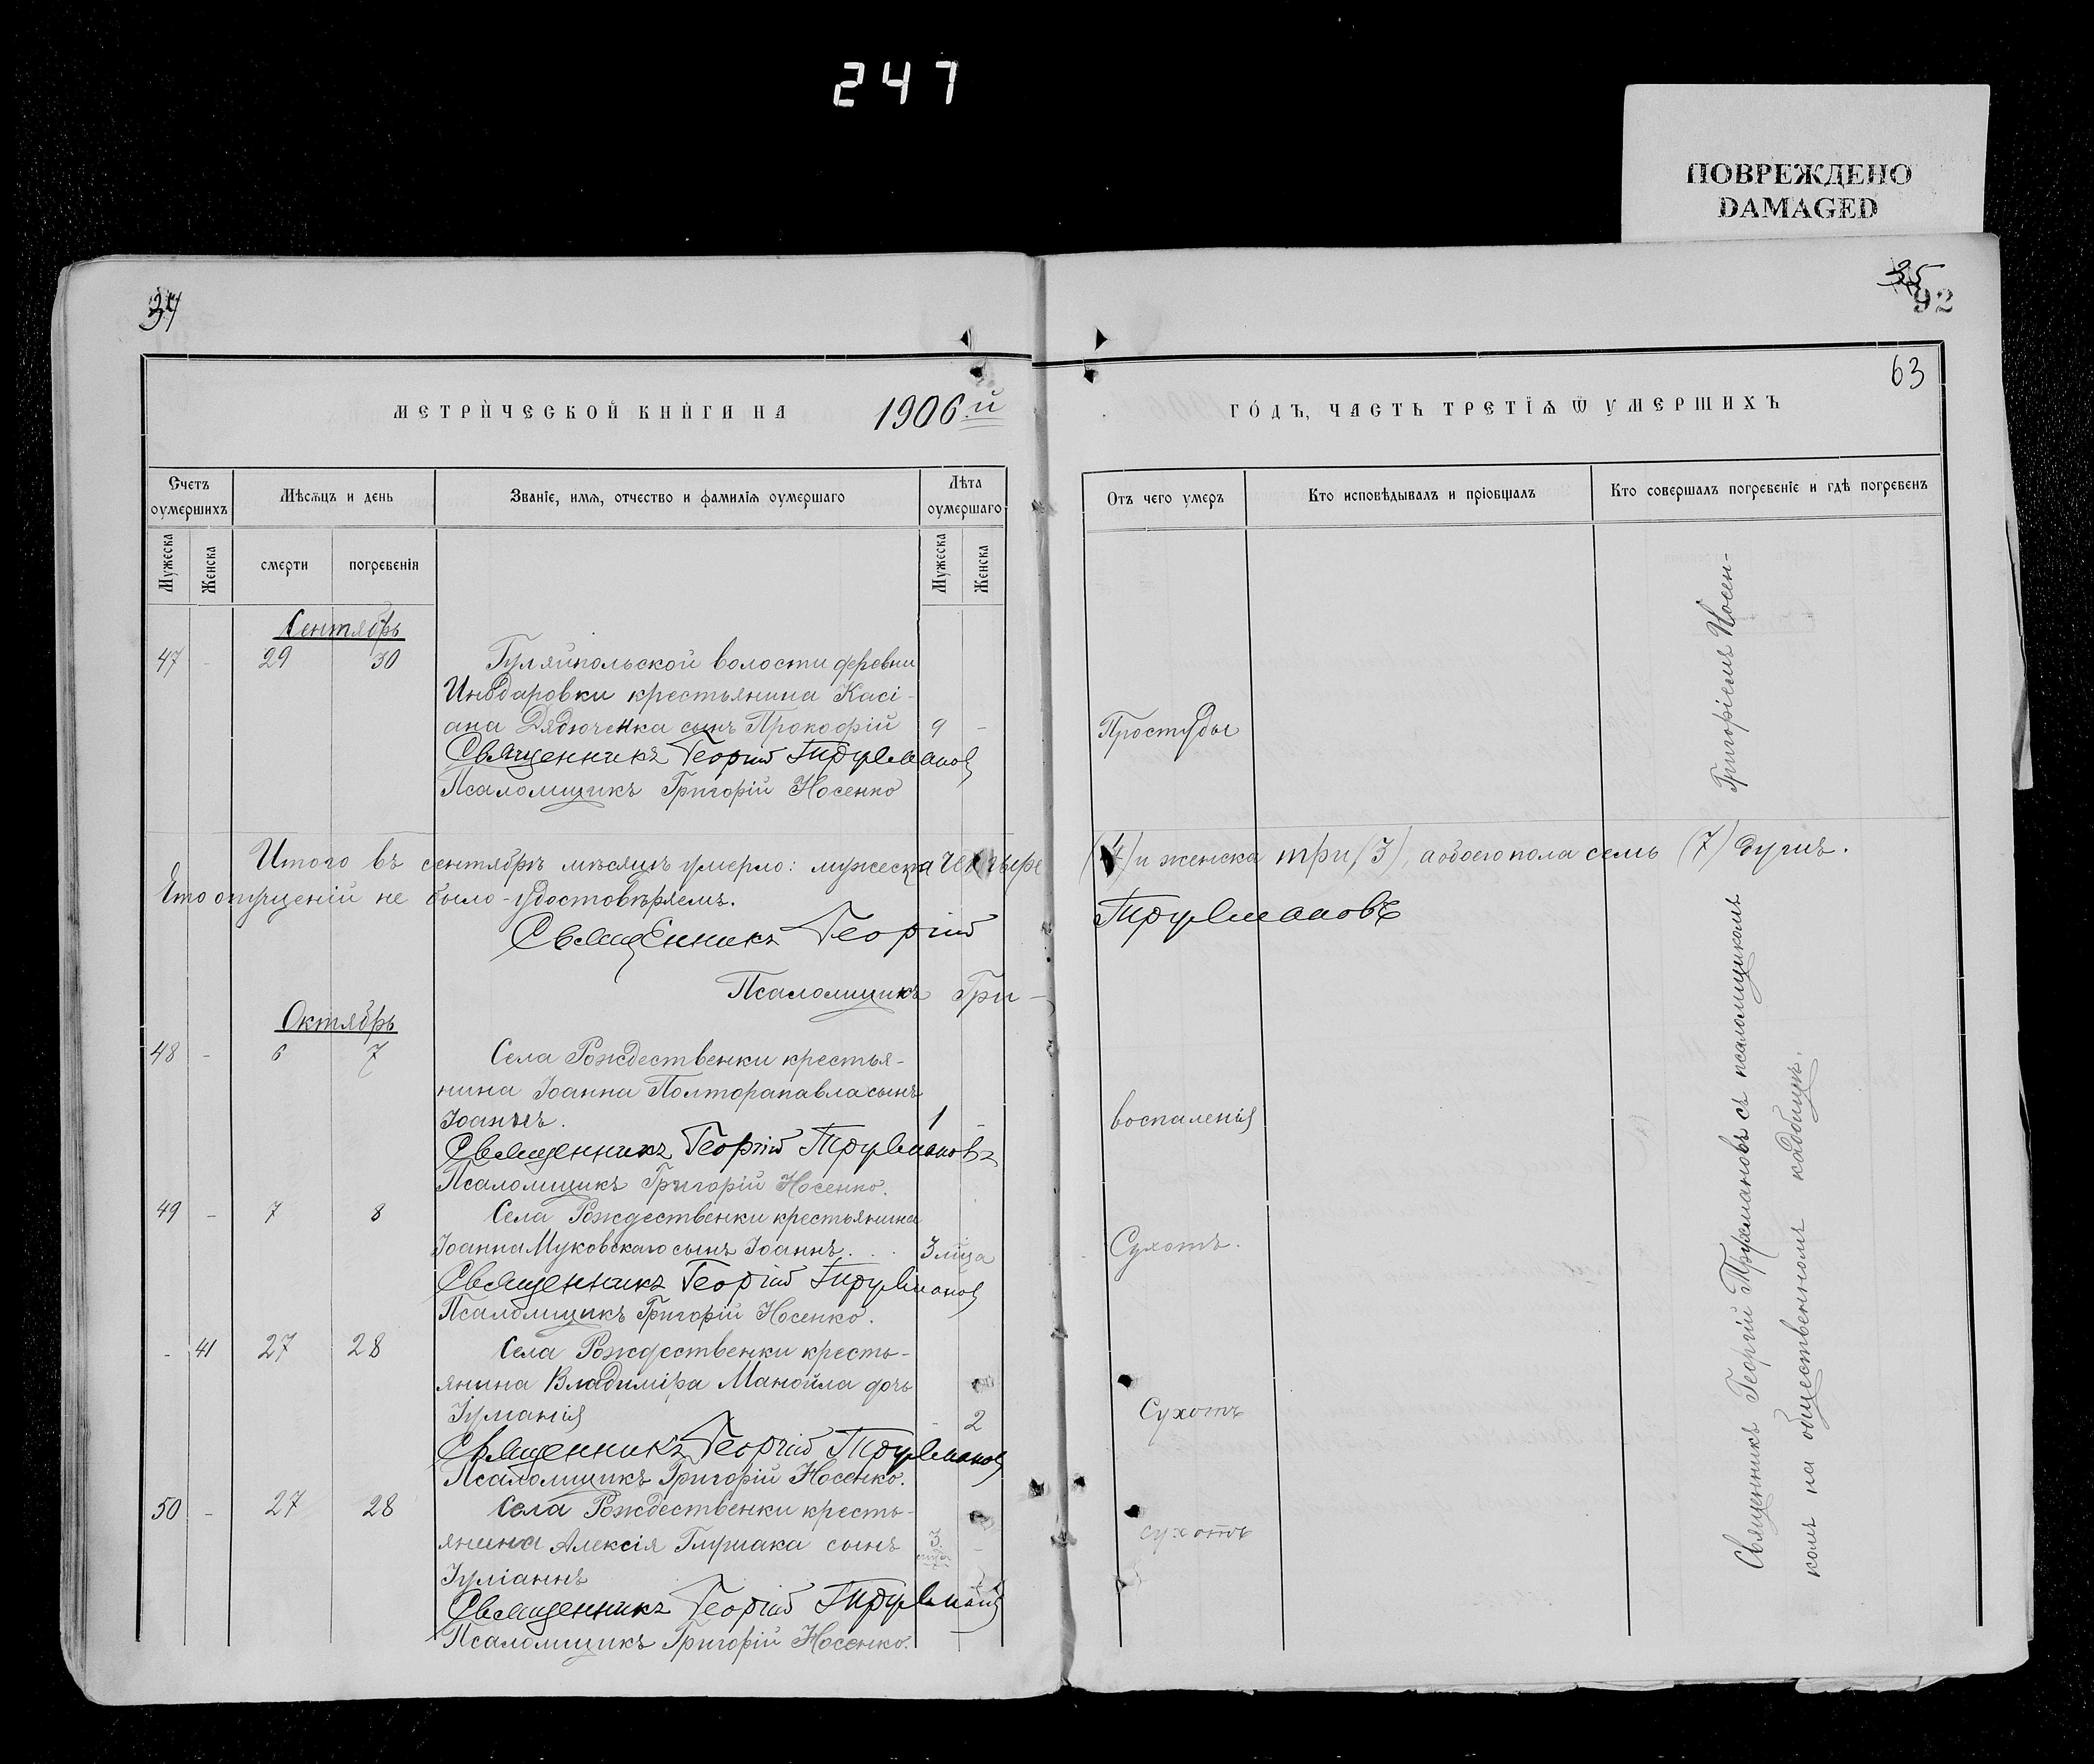 247
ПОВРЕЖДЕНО
DAMAGED
35
92
63
МЕТРИЧЕСКОЙ КНИГИ НА 1906.й
ГОДЪ, ЧАСТЬ ТРЕТІѦ Ѿ УМЕРШИХЪ
Счетъ оумершихъ
Мѣсѧцъ и день
Званіе, имѧ, отчество и фамилїѧ оумершаго
Лѣта оумершаго
Отъ чего умеръ
Кто исповѣдывалъ и прїобщалъ
Кто совершалъ погребенїе и гдѣ погребенъ
Мужеска
Женска
смерти
погребенїѧ
Мужеска
Женска
Сентябрь
47 - 29 30 Гуляйпольской волости деревни
крестьянина Касі-
ана Дядюченка сынъ Прокофій 9 - Простуды
Священникъ Георгій Трусманов
Псаломщикъ Григорій Носенко
Итого въ сентябрѣ мѣсяцѣ умерло: мужеска четыре (4) и женска три (3), а обоего пола семь (7) душъ.
Что опущеній не было - удостовѣряемъ.
Священникъ Георгій Трусмановъ
Псаломщикъ Гри-
Октябрь
48 - 6 7 Села Рождественки крестья-
нина Іоанна Полторапавла сынъ
Іоаннъ. 1 - воспаленія
Священникъ Георгій Трусмановъ
Псаломщикъ Григорій Носенко.
49 - 7 8 Села Рождественки крестьянина
Іоанна Муковскаго сынъ Іоаннъ. 3 мца Сухотъ.
Священникъ Георгій Трусманов
Псаломщикъ Григорій Носенко.
- 41 27 28 Села Рождественки кресть-
янина Владиміра Манойла дочь
Іуліанія - 2 Сухотъ
Священникъ Георгій Трусманов
Псаломщикъ Григорій Носенко.
50 - 27 28 Села Рождественки кресть-
янина Алексія Глушака сынъ 3 мца - сухотъ
Іуліаннъ
Священникъ Георгій Трусманов
Псаломщикъ Григорій Носенко.
Священникъ Георгій Трусмановъ съ псаломщикомъ Григоріемъ Носен-
комъ на общественномъ кладбищѣ.